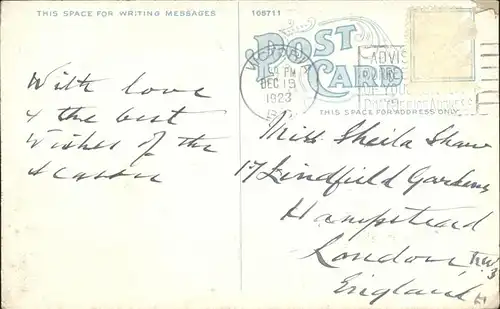 THIS SPACE FOR WRITING MESSAGES
108711
POST
CARD
VICTORIA
PM
DEC 19
1923
B.C.
ADVIS
THIS SPACE FOR ADDRESS ONLY
With love
& the best
wishes of the
season
Miss. Sheila Shaw
17 Lindfield Gardens
Hampstead
London N.W.
3
England